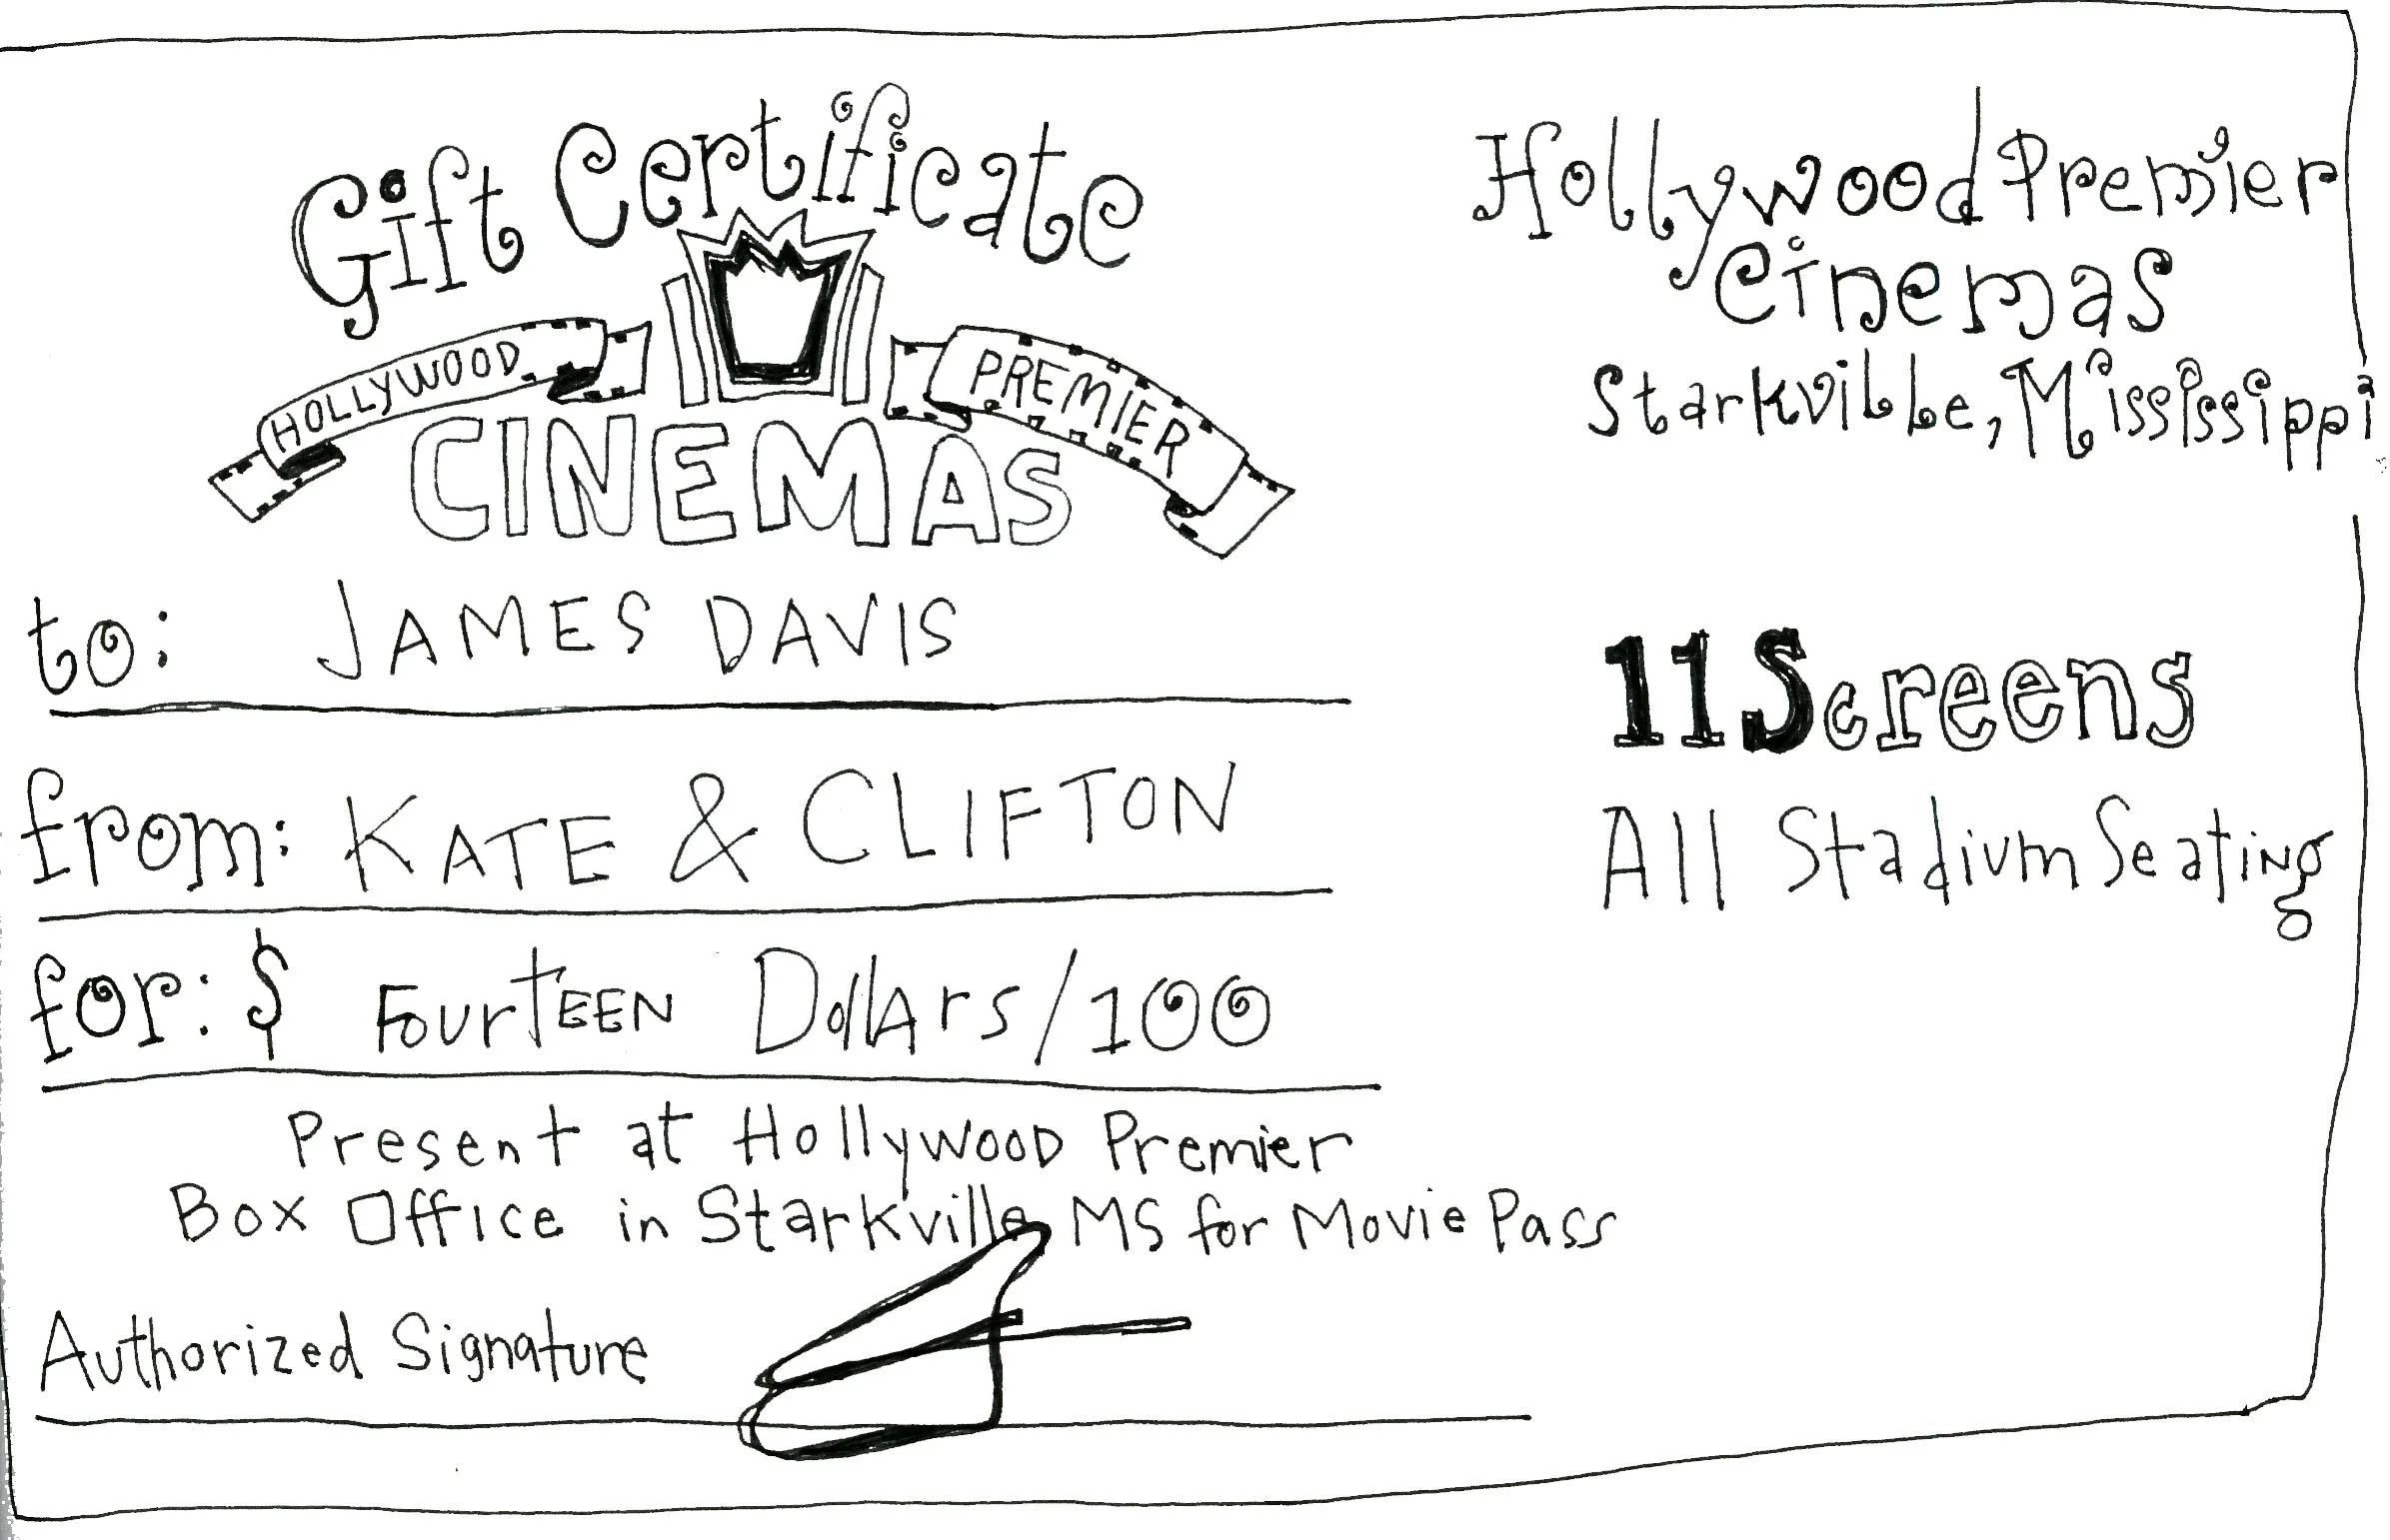 Gift Certificate
HOLLYWOOD PREMIER
CINEMAS
to: JAMES DAVIS
from: KATE & CLIFTON
for: $ FourTEEN DollArs/100
Present at HollywooD Premier
Box OffIce in Starkville MS for Movie Pass
Authorized Signature
Hollywood Premier
Cinemas
Starkville, Mississippi
11 Screens
All Stadium Seating